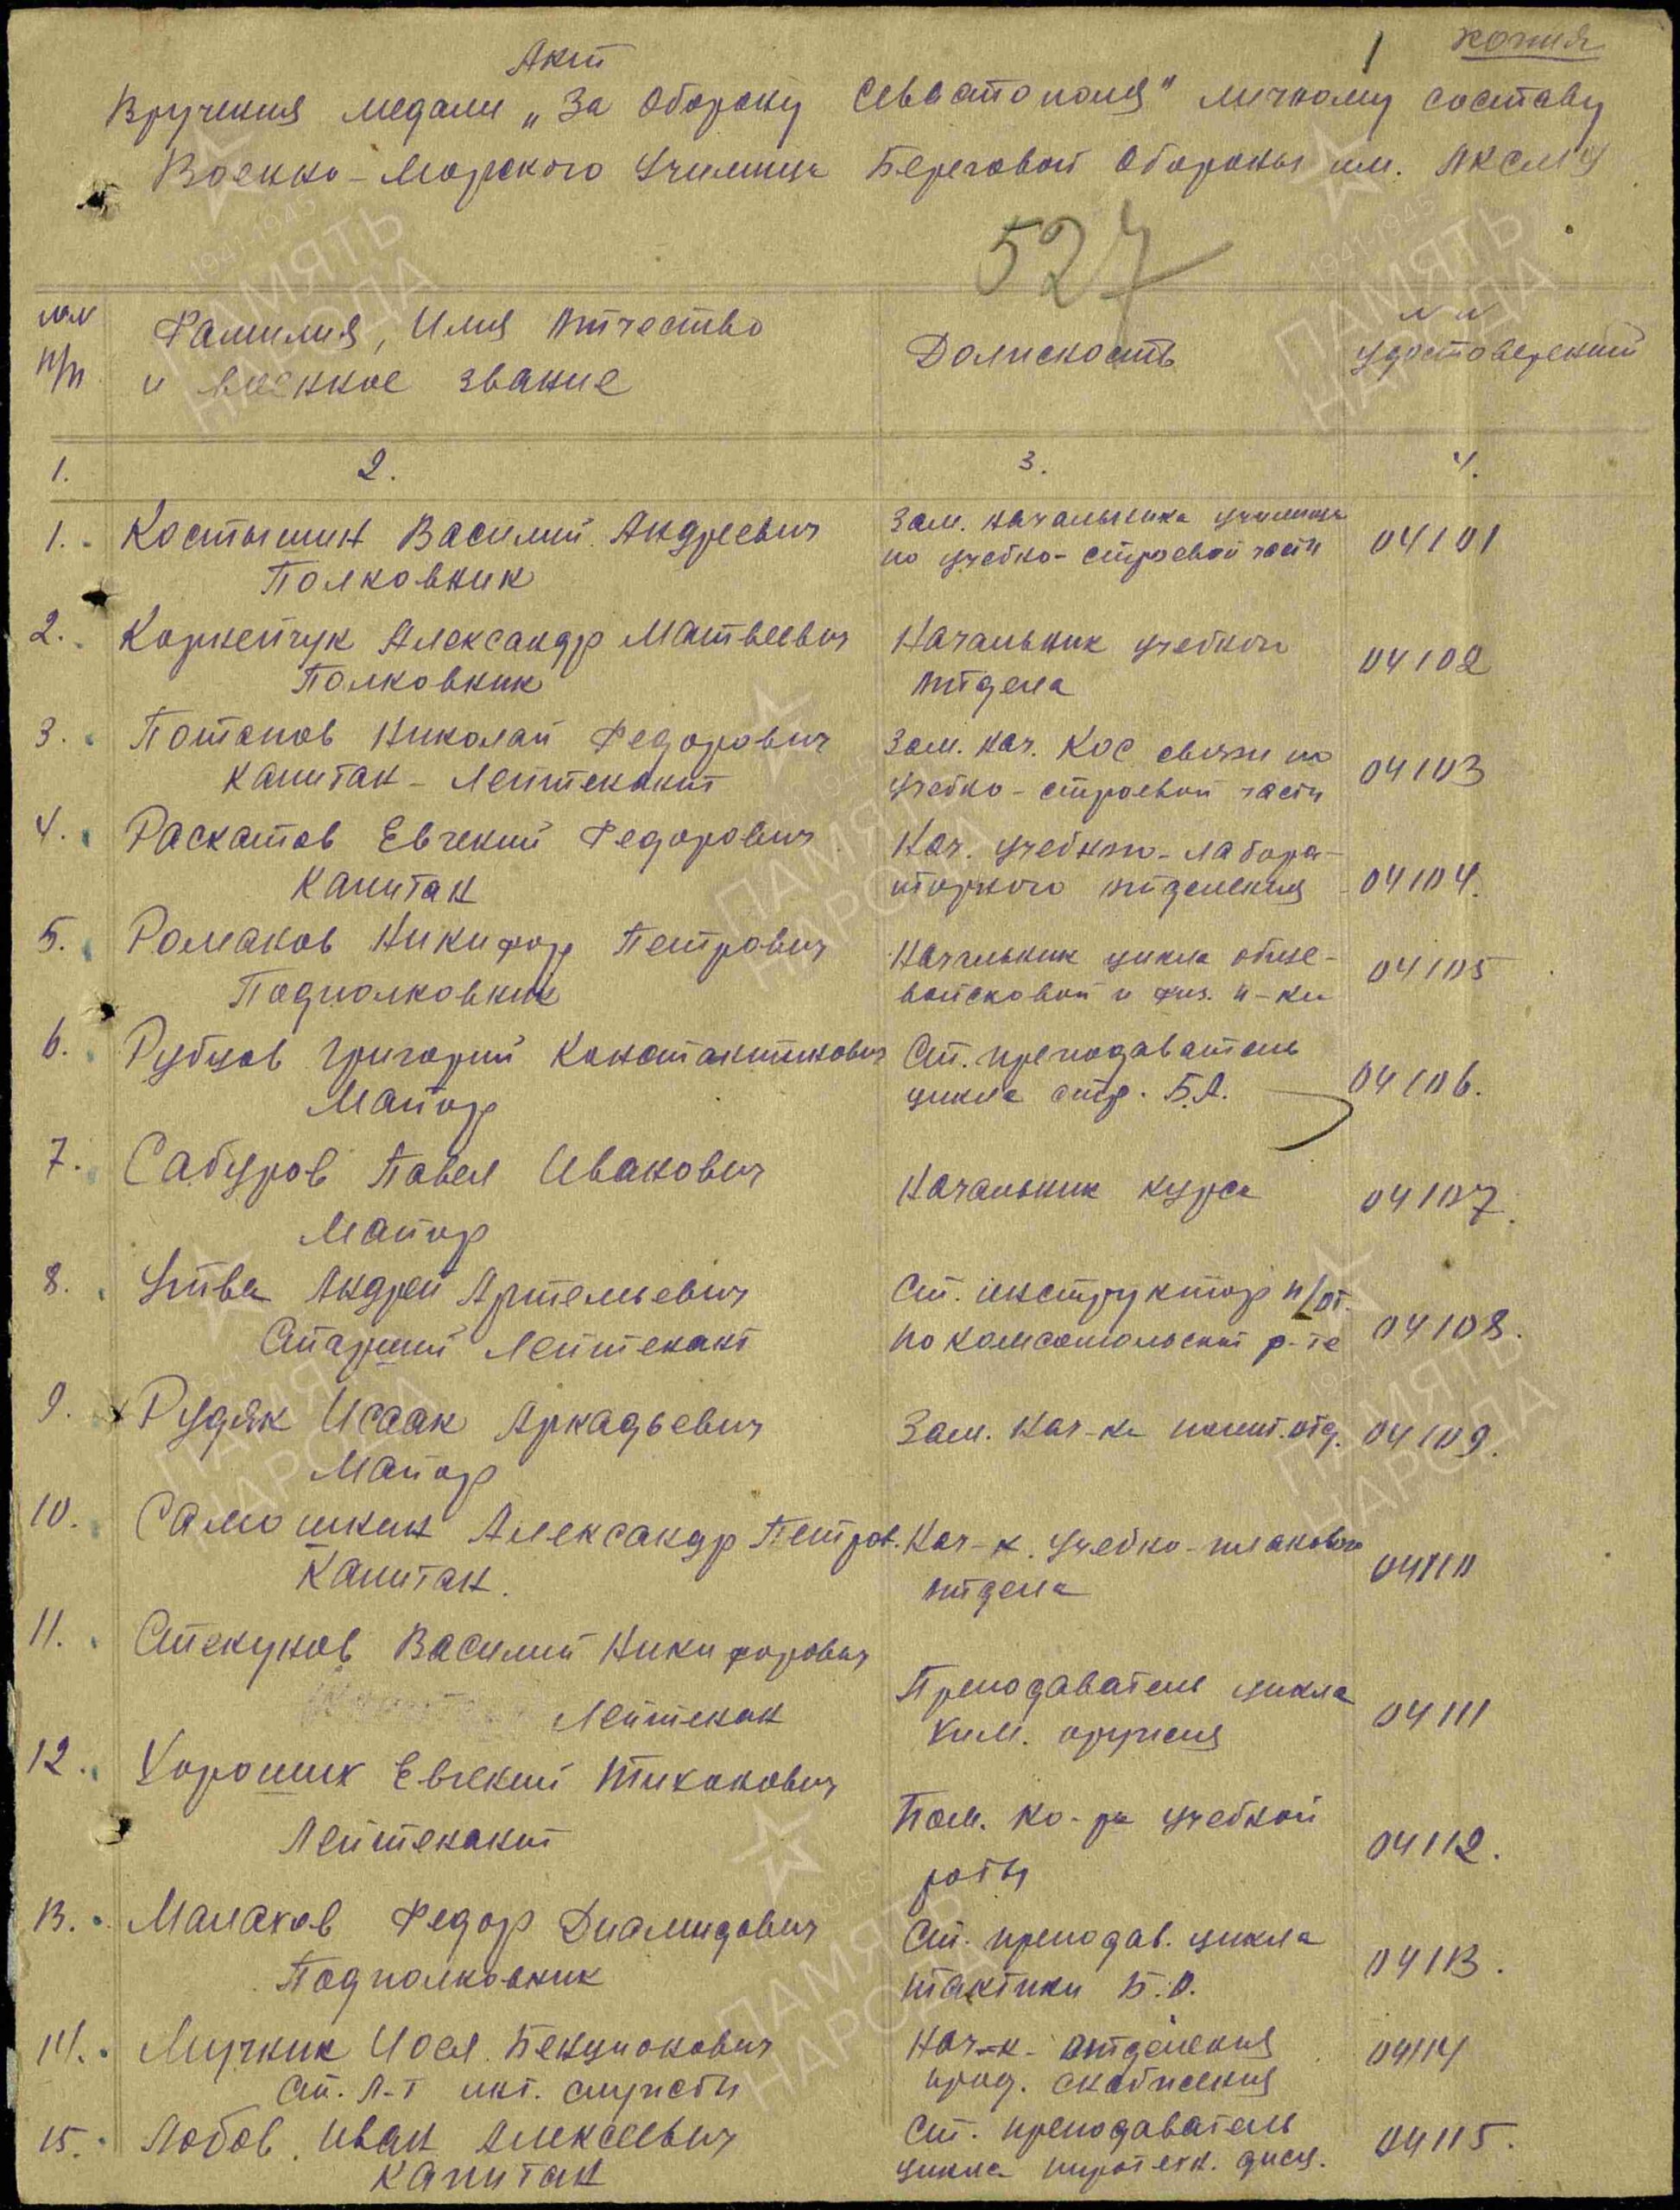 1 копия
Акт
Вручения медали „За Оборону Севастополя" личному составу
Военно-Морского Училища Береговой Обороны им. ЛКСМУ
527
№№ п/п
Фамилия, Имя Отчество
и военное звание
Должность
№№
удостоверений
1. 2. 3. 4.
1. Костышин Василий Андреевич Зам. начальника училища 04101
Полковник по учебно-строевой части
2. Корнейчук Александр Матвеевич Начальник учебного 04102
Полковник отдела
3. Потапов Николай Федорович Зам. нач. Кос связи по 04103
Капитан-Лейтенант учебно-строевой части
4. Раскатов Евгений Федорович Нач. учебно-лабора- 04104.
Капитан торного отделения
5. Романов Никифор Петрович Начальник цикла обще- 04105
Подполковник войсковой и физ. п-ки
6. Рубцов Григорий Константинович Ст. преподаватель 04106.
Майор цикла стр. Б.А.
7. Сабуров Павел Иванович Начальник курса 04107.
Майор
8. Утва Андрей Артемьевич Ст. инструктор п/от. 04108.
Старший Лейтенант по комсомольской р-те
9. Рудяк Исаак Аркадьевич Зам. Нач-ка полит.отд. 04109.
Майор
10. Самошкин Александр Петров. Нач-к. Учебно-планового 04110
Капитан. отдела
11. Стекунов Василий Никифорович Преподаватель цикла 04111
Лейтенан хим. оружия
12. Хорошик Евгений Тихонович Пом. ко-ра учебной 04112.
Лейтенант роты
13. Малахов Федор Диамидович Ст. преподав. цикла 04113.
Подполковник тактики Б.О.
14. Миркин Иосл Бенционович Нач-к. отделения 04114
Ст. Л-т инт. службы прод. снабжения
15. Лобов Иван Алексеевич Ст. преподаватель 04115.
Капитан цикла пиротехн. дисц.
1941-1945
ПАМЯТЬ
НАРОДА